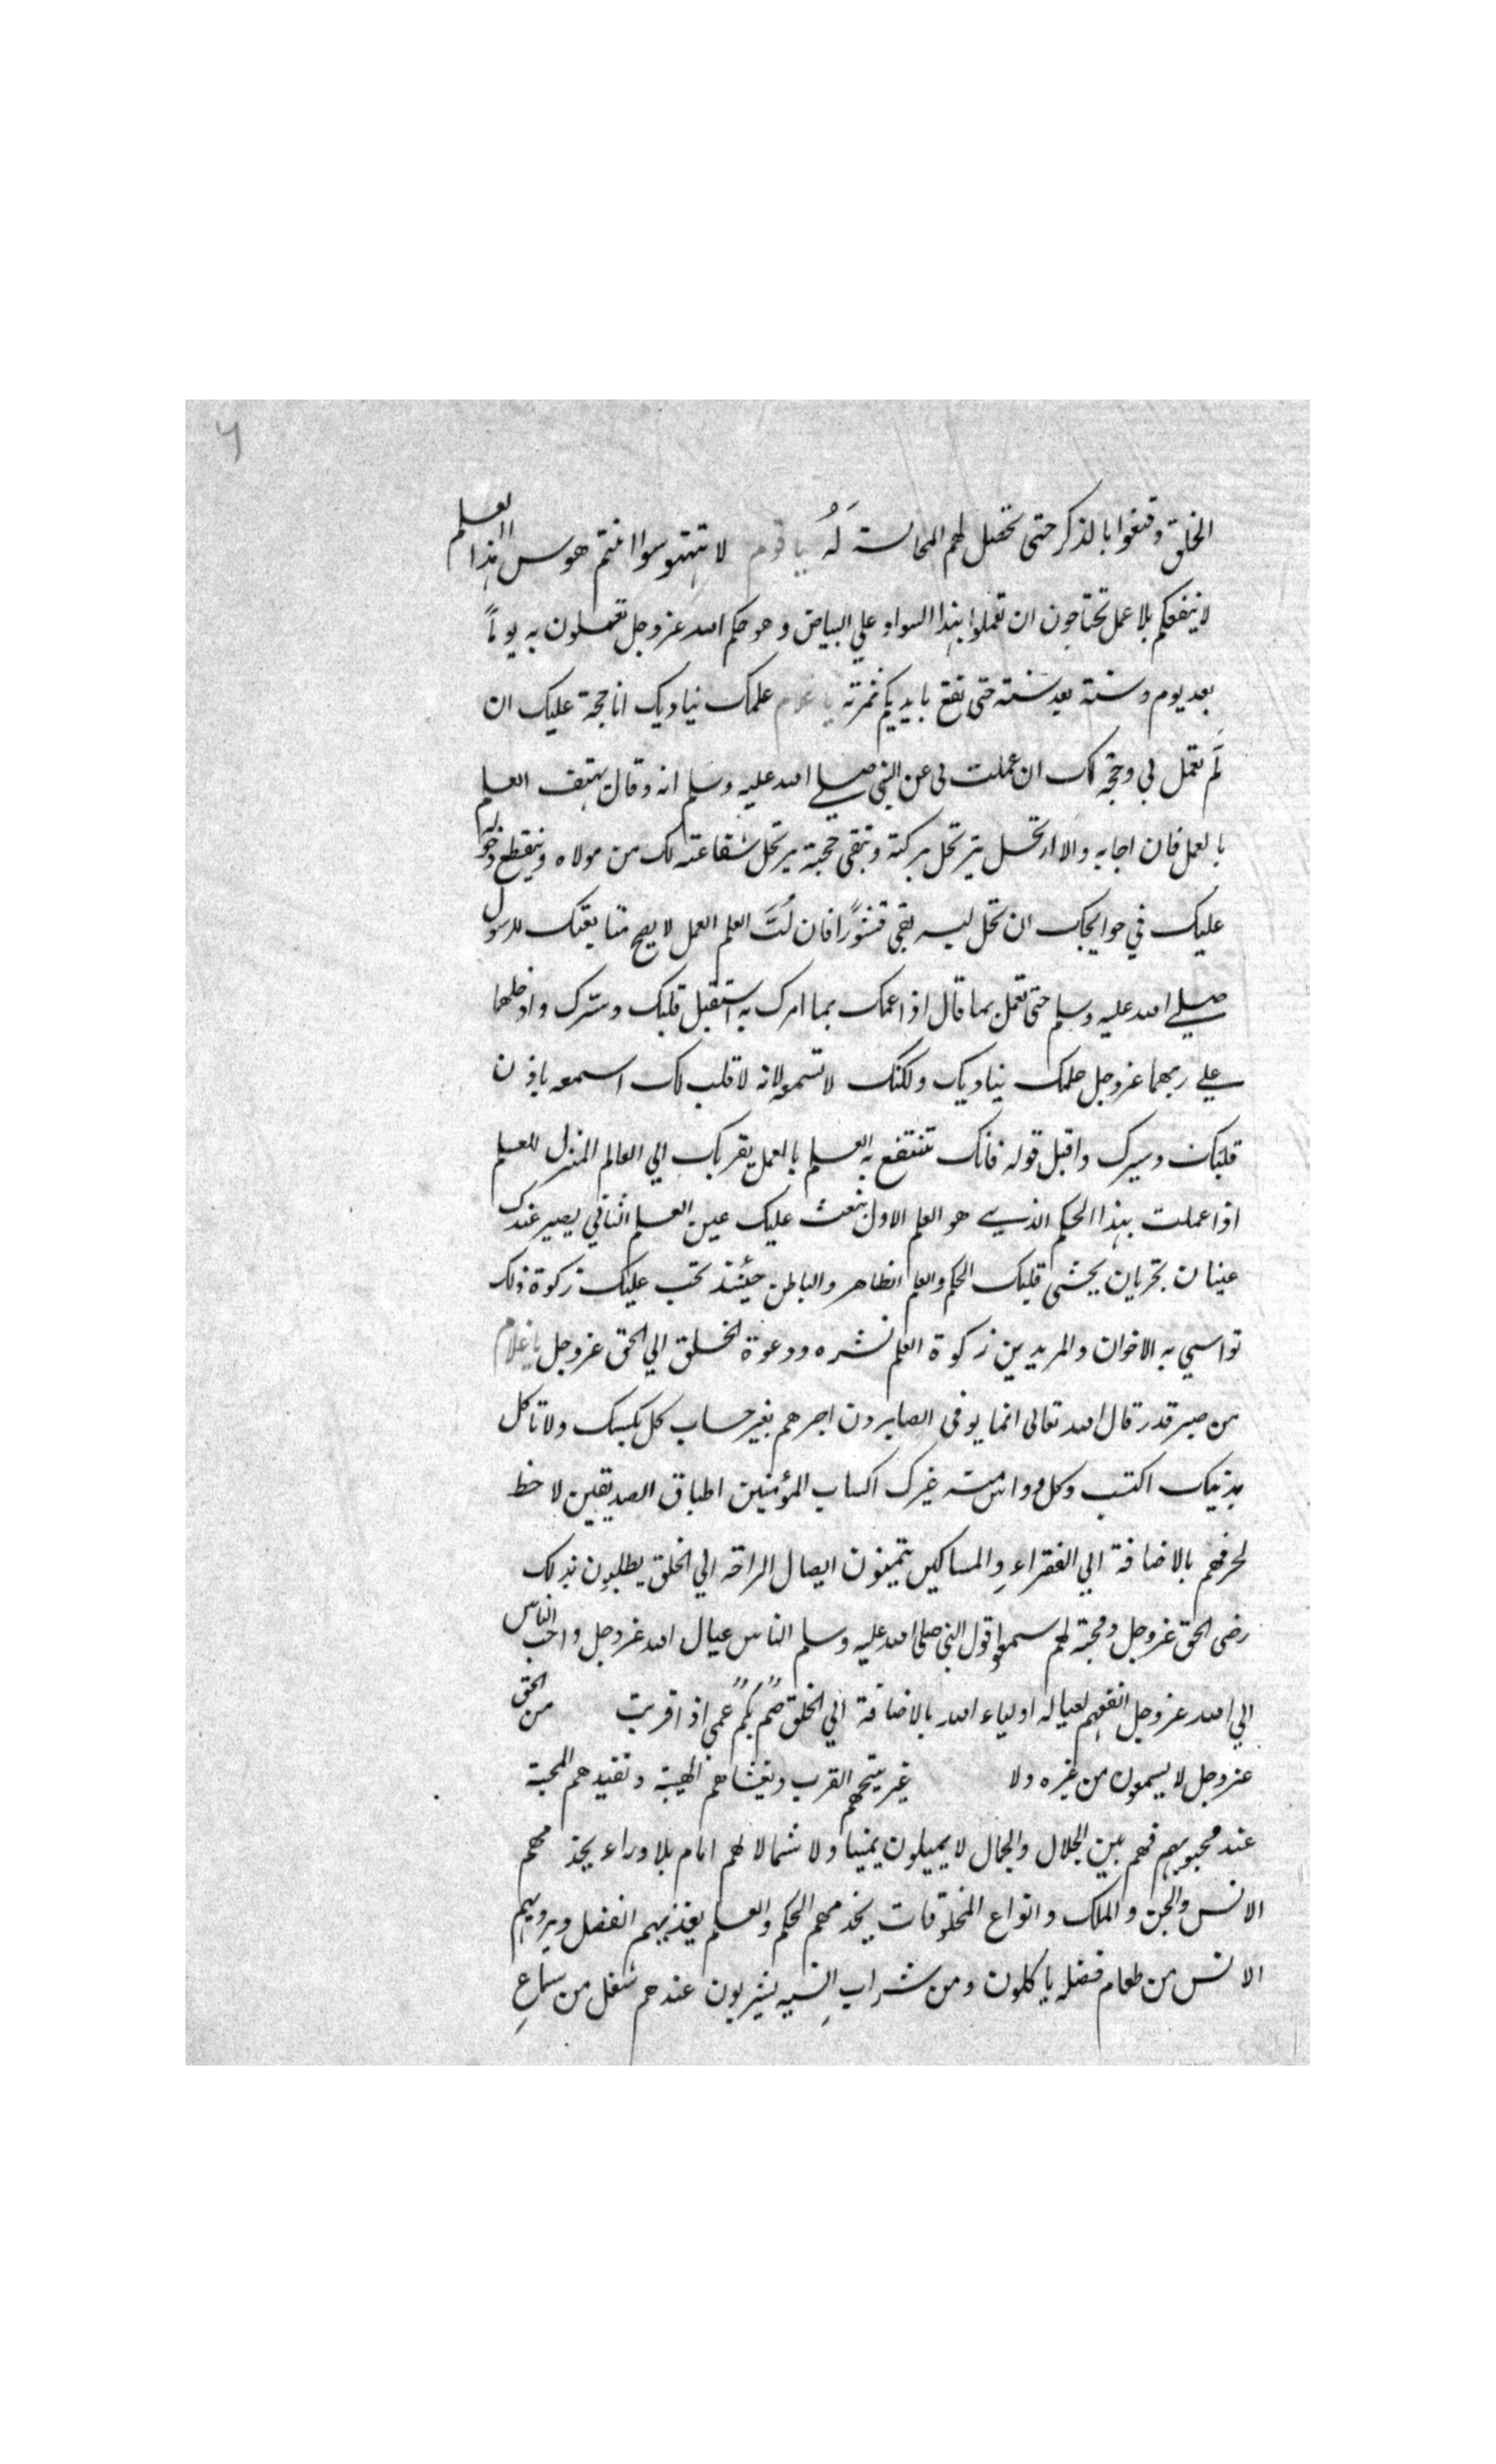 ٦
الخلق وقنعوا بالذكر حتى تحصل لهم المجالسة لَهُ يا قوم لا تتهوسوا انتم هوس هذا العلم
لا ينفعكم بلا عمل تحتاجون ان تعملوا بهذا السواد علي البياض و هو حكم الله عز وجل تعملون به يوماً
بعد يوم وسنة بعد سنة حتى تقع بايديكم ثمرته يا غلام علمك يناديك انا حجة عليك ان
لَم تعمل بي وحجة لك ان عملت بى عن النبي صلي الله عليه وسلم انه وقال يهتف العلم
بالعمل فان اجابه والا ارتحل يرتحل بركته وتبقى حجته يرتحل شفاعته لك من مولاه وينقطع دخوله
عليك في حوايجك ان تحل لبه بقى قشوراً فان لُبَّ العلم العمل لا يصح متابعتك للرسول
صلي الله عليه وسلم حتى تعمل بما قال اذا عمك بما امرك به استقبل قلبك وسرك وادخلهما
علي ربهما عز وجل علمك يناديك ولكنك لا تسمعه لانه لا قلب لك اسمعه باذن
قلبك وسيرك واقبل قوله فانك تنتفع به العلم بالعمل يقربك الي العالم المنزل للعلم
اذا عملت بهذا الحكم الذي هو العلم الاول نبعت عليك عين العلم الثاني يصير عندك
عينان تجريان يحشى قلبك الحكم والعلم الظاهر والباطن حينئذ تجب عليك زكوة ذلك
تواسي به الاخوان والمريدين زكوة العلم نشره ودعوة الخلق الي الحق عز وجل يا غلام
من صبر قدر قال الله تعالى انما يوفى الصابرون اجرهم بغير حساب كل بكسبك ولا تاكل
بدينك اكتسب وكل وواس منه غيرك اكساب المؤمنين اطباق الصديقين لا حظ
لحرفهم بالاضافة الي الفقراءِ والمساكين يتمنون ايصال الراحة الي الخلق يطلبون بذلك
رضى الحق عز وجل ومحبة لهم سمعوا قول النبي صلى الله عليه وسلم الناس عيال الله عز وجل واحب الناس
الي الله عز وجل انفعهم لعياله اولياء الله بالاضافة الي الخلق صمٌ بكمٌ عمى اذا قربت من الحق
عز وجل لا يسمعون من غيره ولا غير يتحهم القرب وتغشاهم الهيبة وتقيدهم المحبة
عند محبوبهم فهم بين الجلال والجمال لا يميلون يمينا ولا شمالا لهم امام بلا وراء يخدمهم
الانس والجن والملك وانواع المخلوقات يخدمهم الحكم والعلم يغذيهم الفضل ويرويهم
الانس من طعام فضله ياكلون ومن شراب انسه يشربون عندهم شغل من سماعِ